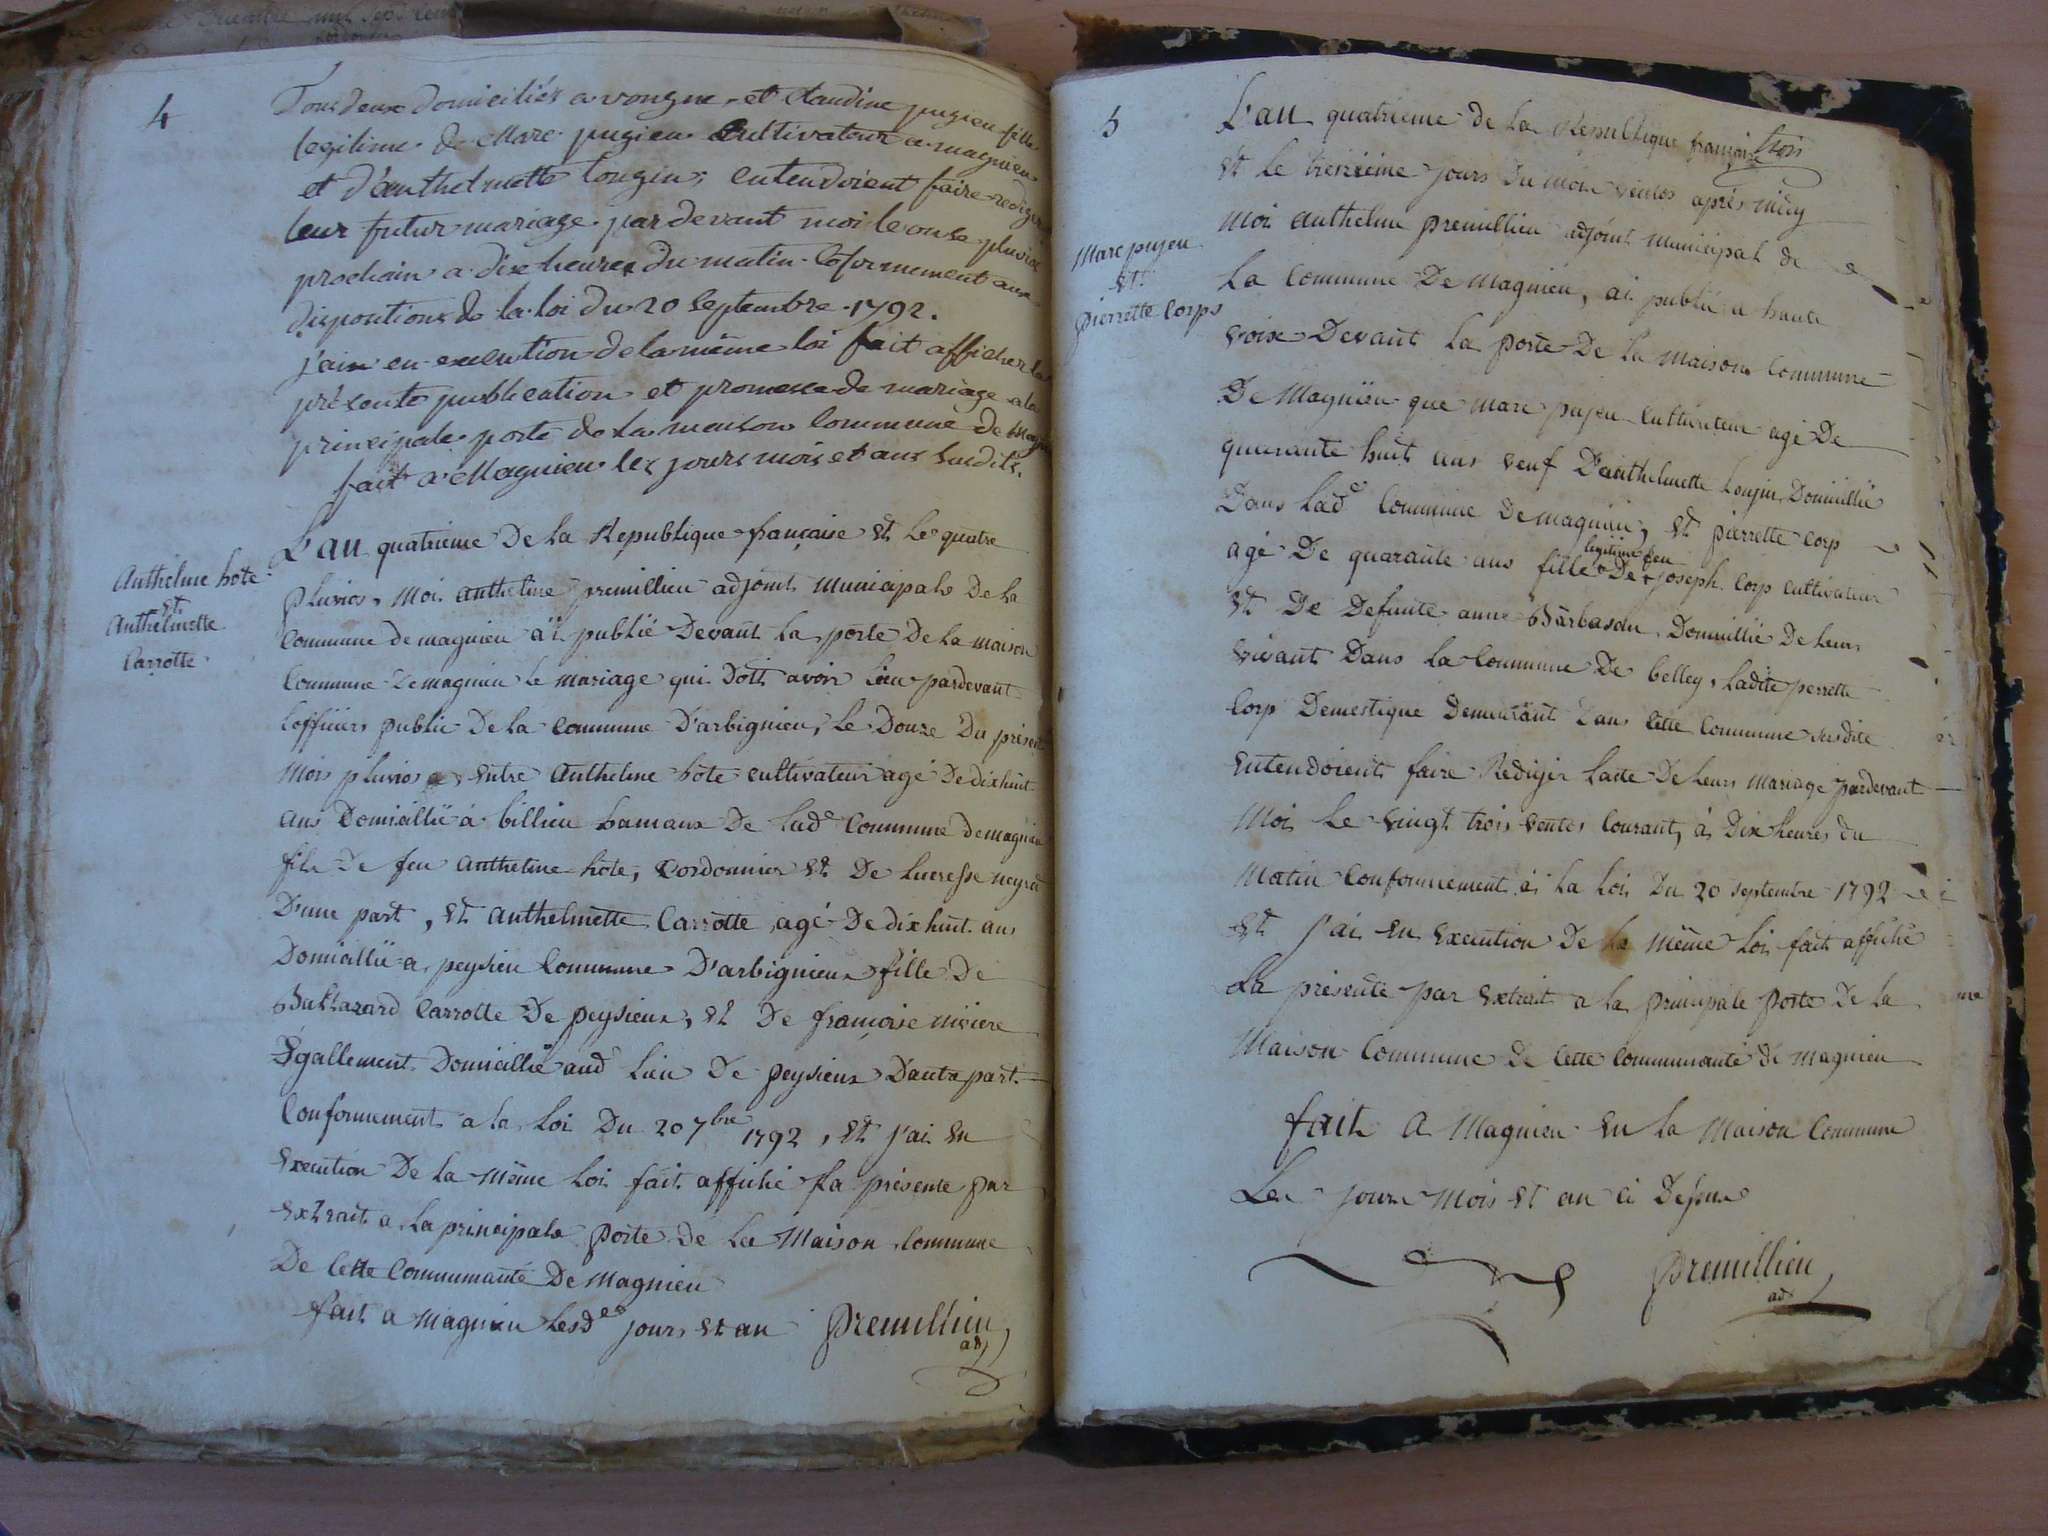 4
Tous deux domiciliés a vongne et Claudine pugieu fille
legitime de Marc pugieu Cultivateur a magnieu
et d'anthelmette Longin; entendoient faire rediger
leur futur mariage par devant moi le onse pluviose
prochain a dix heures du matin Conformement aux
dispositions de la loi du 20 septembre 1792.
j'ai en execution de la même loi fait afficher la
présente publication et promesse de mariage a la
principale porte de la maison Commune de
fait a Magnieu les jours mois et ans susdits.
Anthelme hote
Et
Anthelmette
Carrotte
L'an quatrieme De la Republique française Et Le quatre
pluvios, Moi anthelme premillieu adjoint Municipale De la
Commune de magnieu ai publié Devant la porte De la maison
Commune De magnieu le mariage qui Doit avoir Lieu pardevant
Lofficier public De la Commune D'arbignieu, Le Douze Du présent
Mois pluvios Entre Anthelme hote cultivateur agé De dixhuit
ans Domicillié à billieu hamaux De Lad.e Commune de magnieu
fils De feu Anthelme hote, Cordonnier Et De Lucresse neyrd
D'une part, Et Anthelmette Carrotte agé De dix huit ans
Domicillié a peysieu Commune D'arbignieux fille De
Baltazard Carrotte De peysieux, Et De françoise niviere
Égallement Domicillié aud Lieu De peysieux D'autre part
Conformement a la Loi Du 20 7bre 1792, Et j'ai En
Execution De la Même Loi fait affiché La présente par
Extrait a la principale Porte De La Maison Commune
De Cette Communauté De Magnieu
fait a Magnieu Lesd.es jours Et an Premillieu
adj
5
L'an quatrieme de La Republique française trois
Et Le treizieme jours Du mois ventos après midy
Marc pujeu
Et
pierrette Corps
Moi anthelme premillieu adjoint Municipal de
La Commune De Magnieu, ai publié a haute
voix Devant La porte De La Maison Commune
De Magnieu que marc pujeu Cultivateur agé De
quarante huit ans veuf D'anthelmette Longin, Domicillié
Dans Lad.e Commune De magnieu, Et pierrette Corp
agé De quarante ans fille legitime De feu joseph Corp Cultivateur
Et De Defunte anne Barbasdu Domicillié De leurs
vivant Dans La Commune De belley, Ladite perrette
Corp Domestique Demeurant Dans Cette Commune susdite
Entendoient faire Rediger Lacte De Leurs Mariage pardevant
Moi Le vingt trois ventos Courant, à Dix heures du
Matin Conformement à La Loi Du 20 septembre 1792
Et j'ai En Execution De La Même Loi fait affiché
La présente par Extrait a La principale Porte De La
Maison Commune De Cette Communauté De Magnieu
fait a Magnieu En La Maison Commune
Les jours Mois Et an Ci Dessus
Premillieu
adj